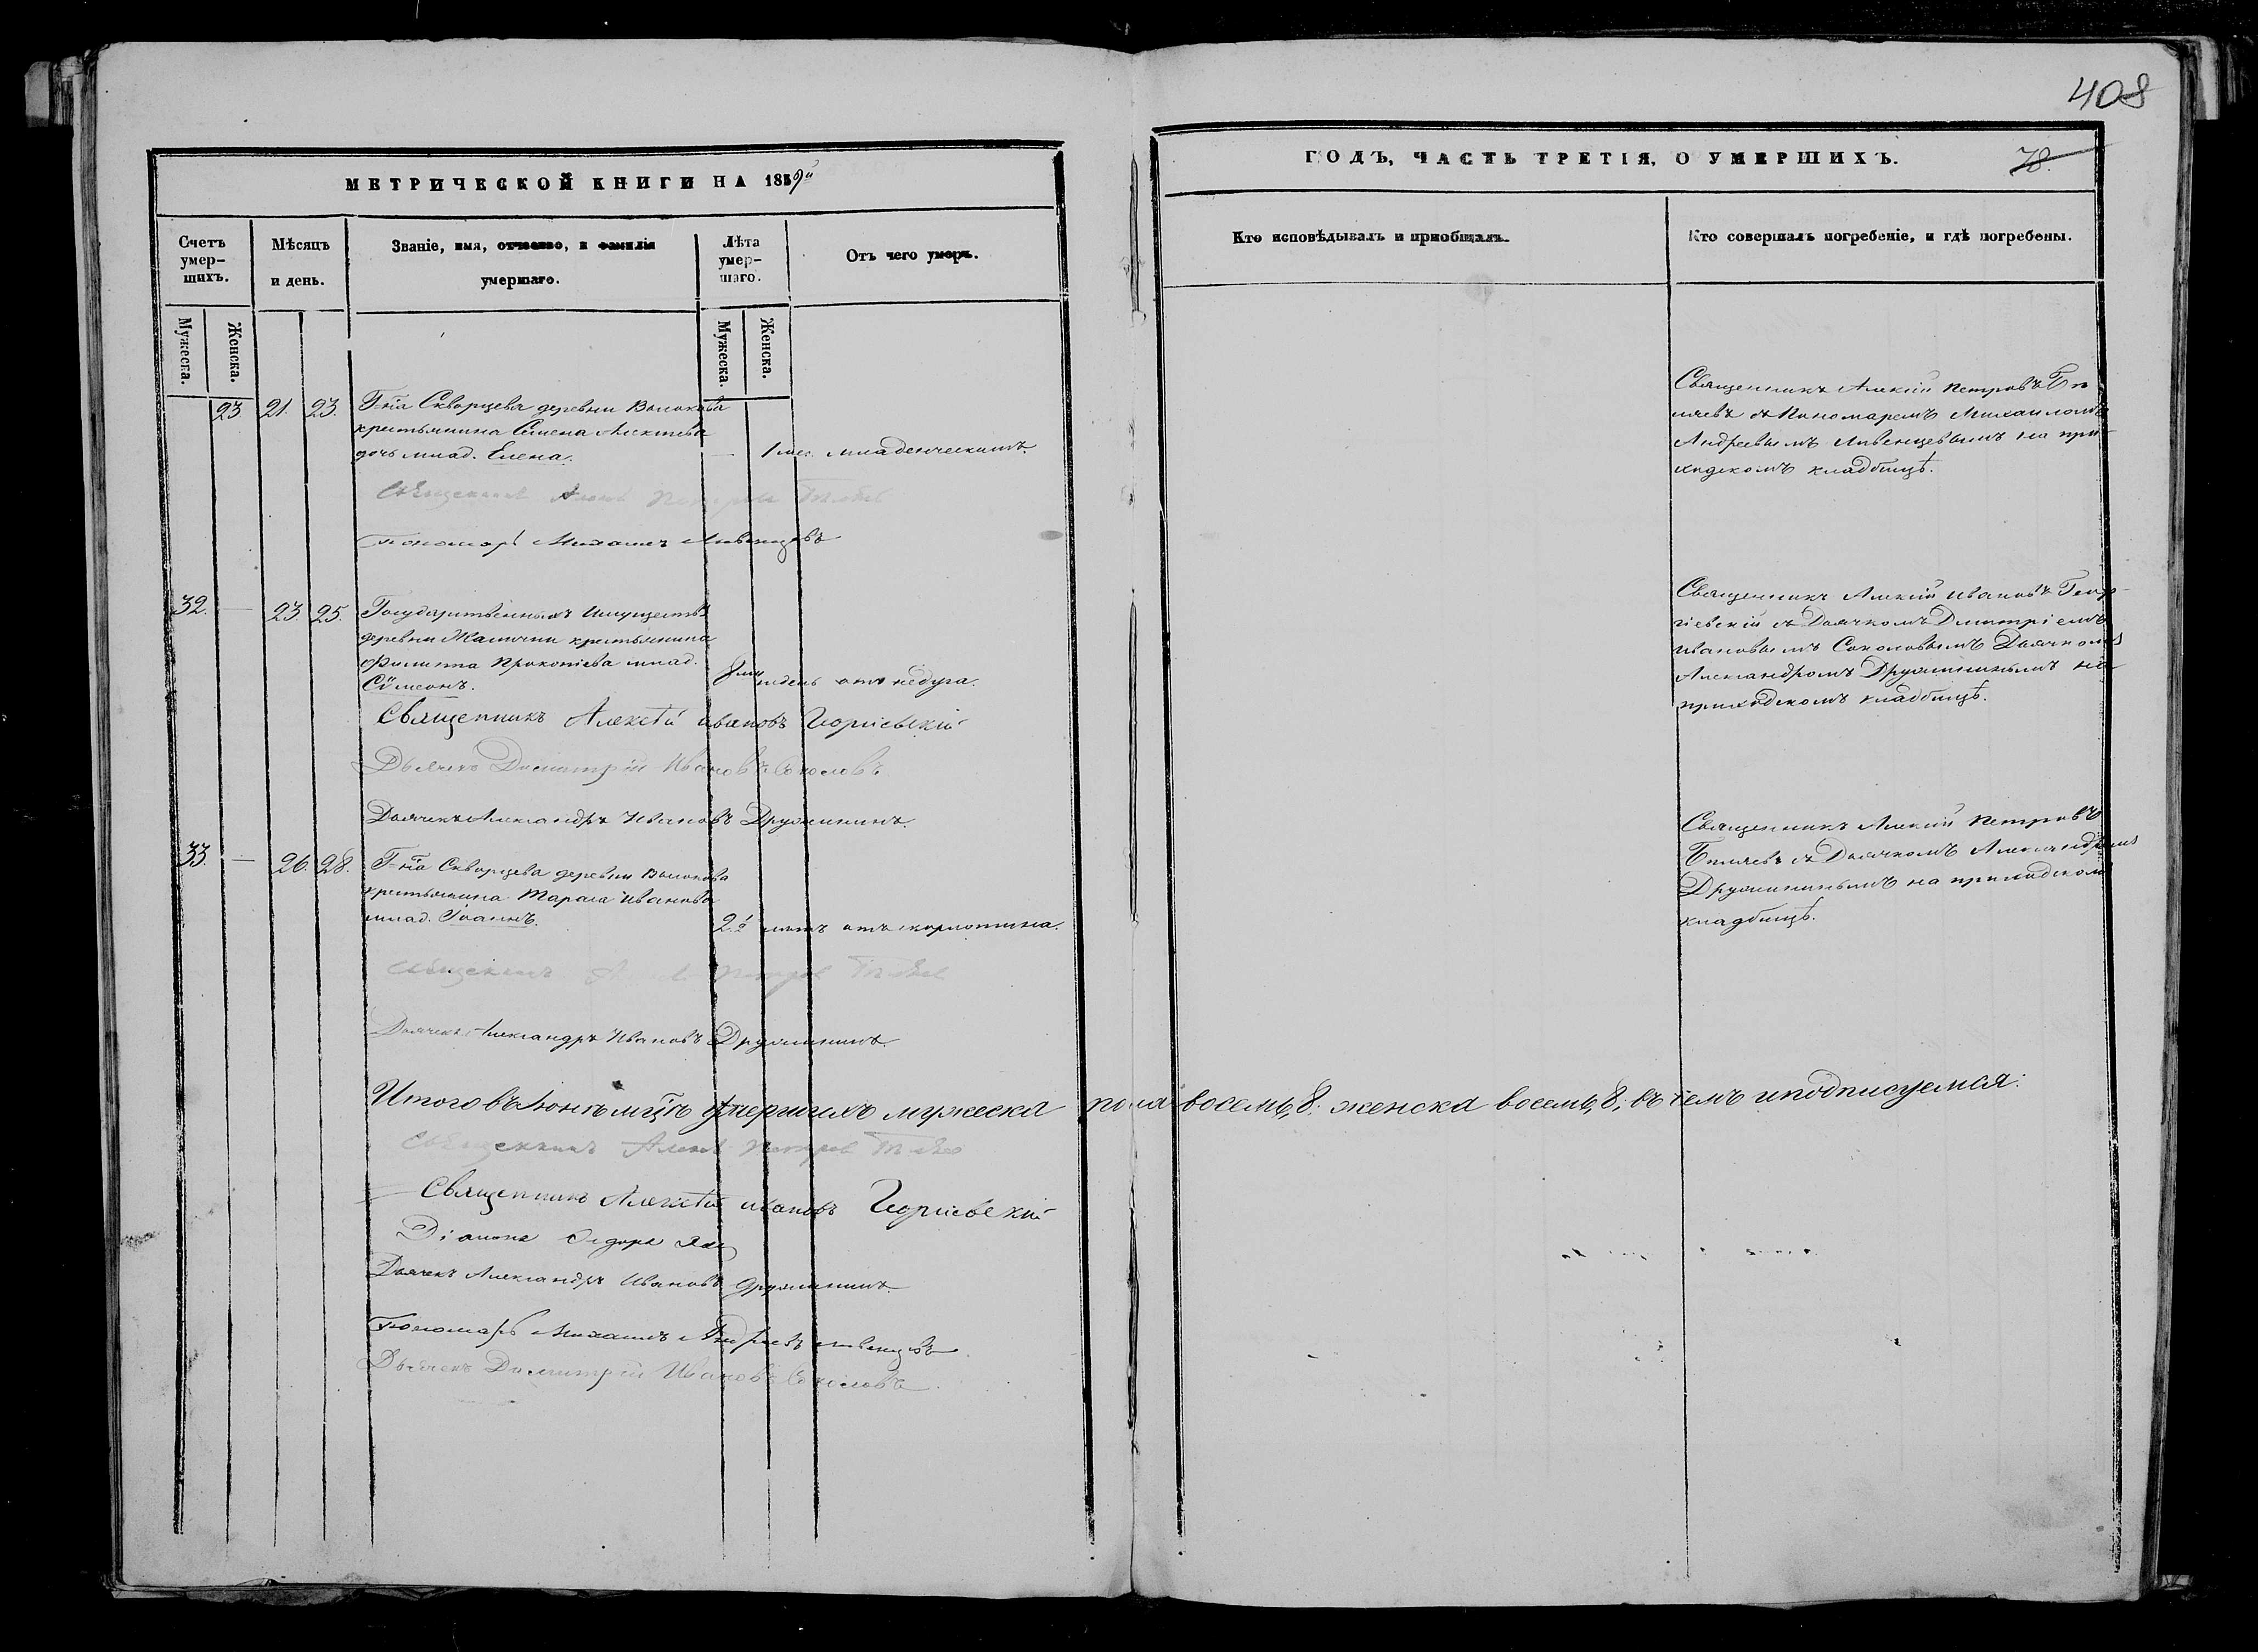 408
МЕТРИЧЕСКОЙ КНИГИ НА 1859й
ГОДЪ, ЧАСТЬ ТРЕТІЯ, О УМЕРШИХЪ.
78.
Счетъ умер-
шихъ.
Мѣсяцъ
и день.
Званіе, имя, отчество, и фамилія
умершаго.
Лѣта
умер-
шаго.
Отъ чего умеръ.
Кто исповѣдывалъ и приобщалъ.
Кто совершалъ погребеніе, и гдѣ погребены.
Мужеска.
Женска.
Мужеска.
Женска.
23 21. 23.
Г-на Скворцева деревни
крестьянина Семена Алексѣева
дочь млад. Елена.
— 1 мес. младенческимъ.
Священникъ Алексій Петровъ
съ Пономаремъ Михаиломъ
Андреевымъ Ливенцевымъ на при-
ходскомъ кладбищѣ.
Священникъ Петровъ
Пономарь Михаилъ Ливенцевъ
32. — 23. 25.
Государственныхъ Имуществъ
деревни крестьянина
Филиппа Прокопіева млад.
Сѵмеонъ.
8ми недель отъ недуга.
Священникъ Алексій Ивановъ Геор-
гіевскій съ Дьячкомъ Дмитріемъ
Ивановымъ Соколовымъ Дьячкомъ
Александромъ Дружининымъ на
приходскомъ кладбищѣ.
Священникъ Алексѣй Ивановъ Георгіевскій
Дьячекъ Димитрій Ивановъ Соколовъ
Дьячекъ Александръ Ивановъ Дружининъ.
33. — 26. 28.
Г-на Скворцева деревни
крестьянина Тараса Иванова
млад. Іоаннъ.
2. отъ
Священникъ Алексій Петровъ
съ Дьячкомъ Александромъ
Дружининымъ на приходскомъ
кладбищѣ.
Священникъ Петровъ
Дьячекъ Александръ Ивановъ Дружининъ.
Итого въ Іюнѣ мцѣ умершихъ мужеска пола восемь, 8. женска восемь, 8; въ семъ и подписуемся:
Священникъ Петровъ
Священникъ Алексѣй Ивановъ Георгіевскій
Діаконъ
Дьячекъ Александръ Ивановъ Дружининъ.
Пономарь Михаилъ Андреевъ Ливенцевъ
Дьячекъ Димитрій Ивановъ Соколовъ